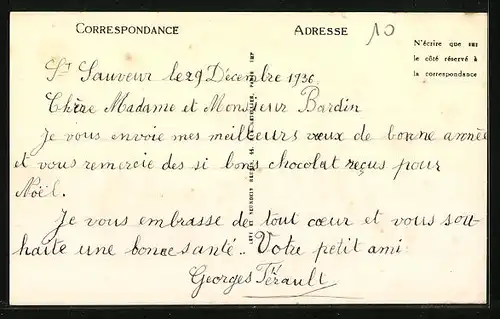 CORRESPONDANCE
ADRESSE
10
N'écrire que sur
le côté réservé à
la correspondance
St Sauveur le 29 Décembre 1936
Chère Madame et Monsieur Bardin
Je vous envoie mes meilleurs vœux de bonne année
et vous remercie des si bons chocolat reçus pour
Noël.
Je vous embrasse de tout cœur et vous sou-
haite une bonne santé.. Votre petit ami
Georges Térault